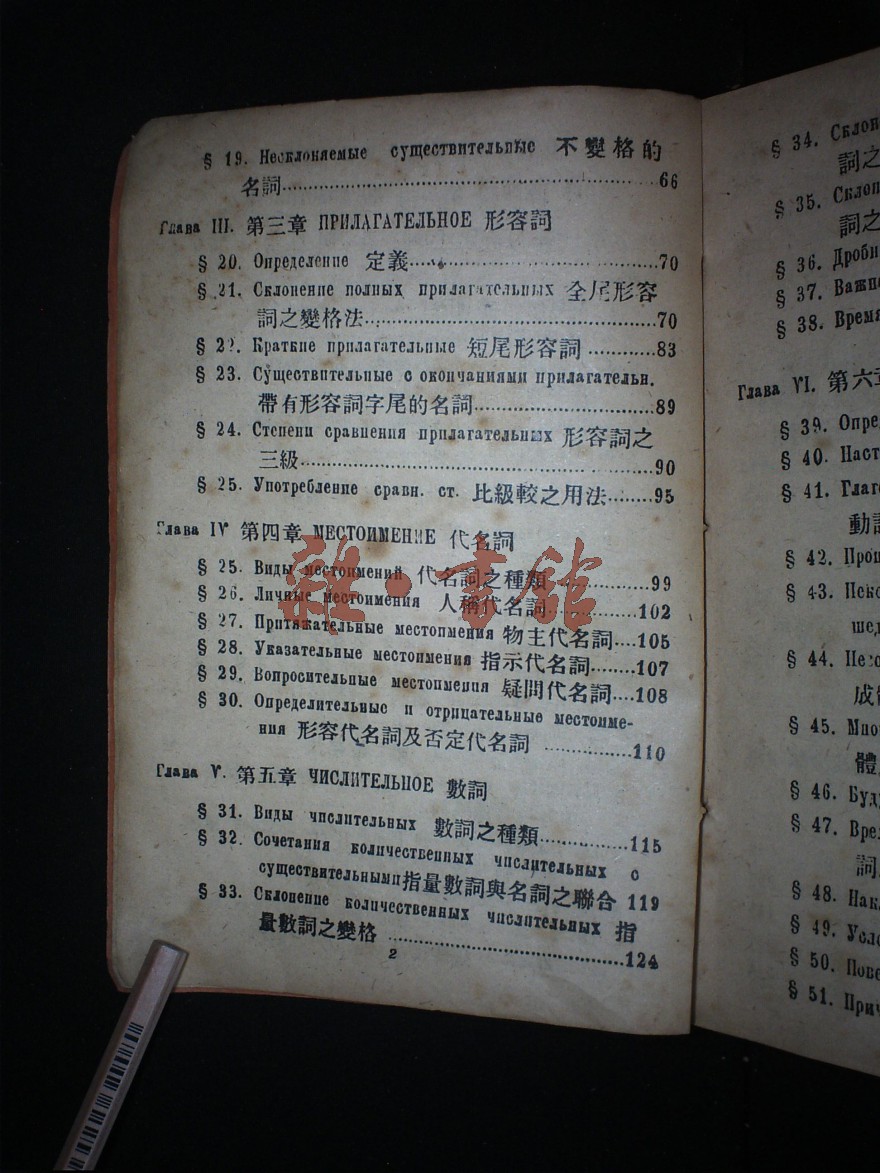 § 19. Несклоняемые существительные 不變格的
名詞 66
Глава III. 第三章 ПРИЛАГАТЕЛЬНОЕ 形容詞
§ 20. Определение 定義 70
§ 21. Склонение полных прилагательных 全尾形容
詞之變格法 70
§ 22. Краткие прилагательные 短尾形容詞 83
§ 23. Существительные с окончаниями прилагательн.
帶有形容詞字尾的名詞 89
§ 24. Степени сравнения прилагательных 形容詞之
三級 90
§ 25. Употребление сравн. ст. 比級較之用法 95
Глава IV 第四章 МЕСТОИМЕНИЕ 代名詞
§ 25. Виды местоимений 代名詞之種類 99
§ 26. Личные местоимения 人稱代名詞 102
§ 27. Притяжательные местоимения 物主代名詞 105
§ 28. Указательные местоимения 指示代名詞 107
§ 29. Вопросительные местоимения 疑問代名詞 108
§ 30. Определительные и отрицательные местоиме-
ния 形容代名詞及否定代名詞 110
Глава V. 第五章 ЧИСЛИТЕЛЬНОЕ 數詞
§ 31. Виды числительных 數詞之種類 115
§ 32. Сочетания количественных числительных с
существительными指量數詞與名詞之聯合 119
§ 33. Склонение количественных числительных 指
量數詞之變格 124
2
雜·書館
§ 34. Склон
詞之
§ 35. Склон
詞之
§ 36. Дроби
§ 37. Важн
§ 38. Время
Глава VI. 第六章
§ 39. Опре
§ 40. Наст
§ 41. Глаг
動詞
§ 42. Прош
§ 43. Неко
шед
§ 44. Несо
成
§ 45. Мно
體
§ 46. Буду
§ 47. Вре
詞
§ 48. Нак
§ 49. Усло
§ 50. Пове
§ 51. Прич